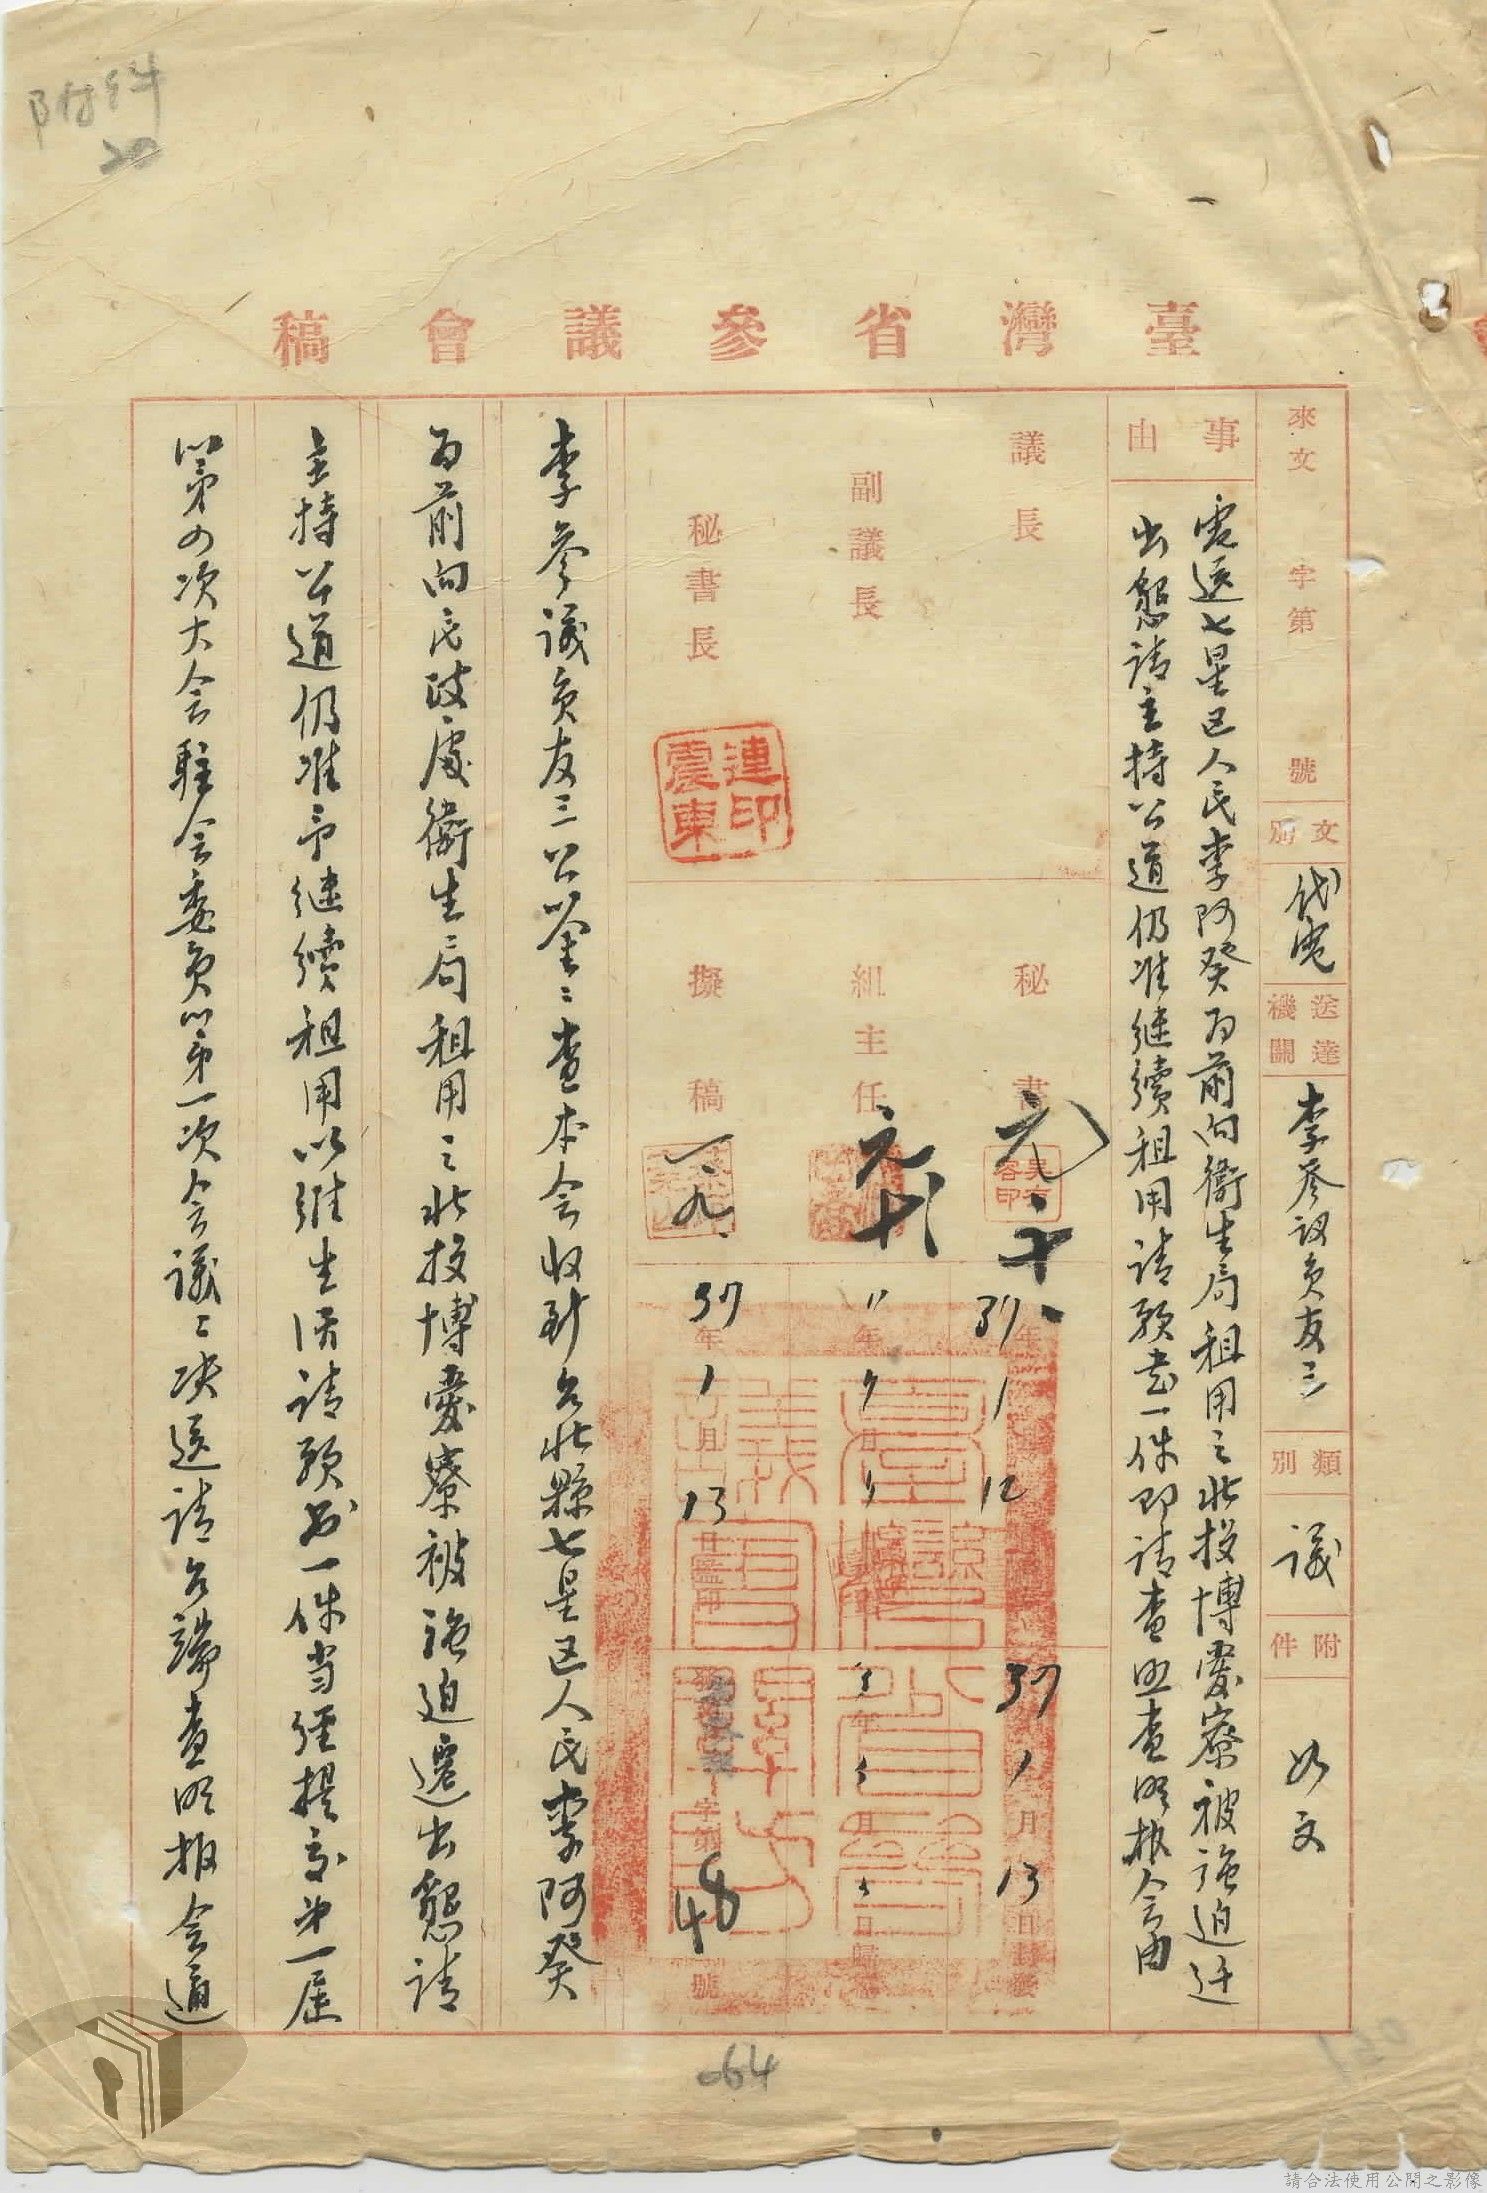 附件
20
臺灣省參議會稿
來文 字第 號
文別 代電
送達機關 李參議員友三
類別 議
附件 如文
事由
電送七星区人民李阿癸为前向衛生局租用之北投博愛寮被強迫迁
出懇請主持公道仍准继续租用請願書一件即請查照查明报会由
議長
副議長
秘書長
連震東印
秘書
元、十、
組主任
元、十
擬稿
一、九、
37年1月12
37年1月13日封發
37年1月13日監印
年 月 日歸檔
字第48號
李參議員友三公鑒：查本会收到台北縣七星区人民李阿癸
为前向民政處衛生局租用之北投博愛寮被強迫遷出懇請
主持公道仍准予继續租用以維生活請願书一件当經提交第一屆
第四次大会駐会委員第一次会議：决送請台端查明报会通
64
請合法使用公開之影像